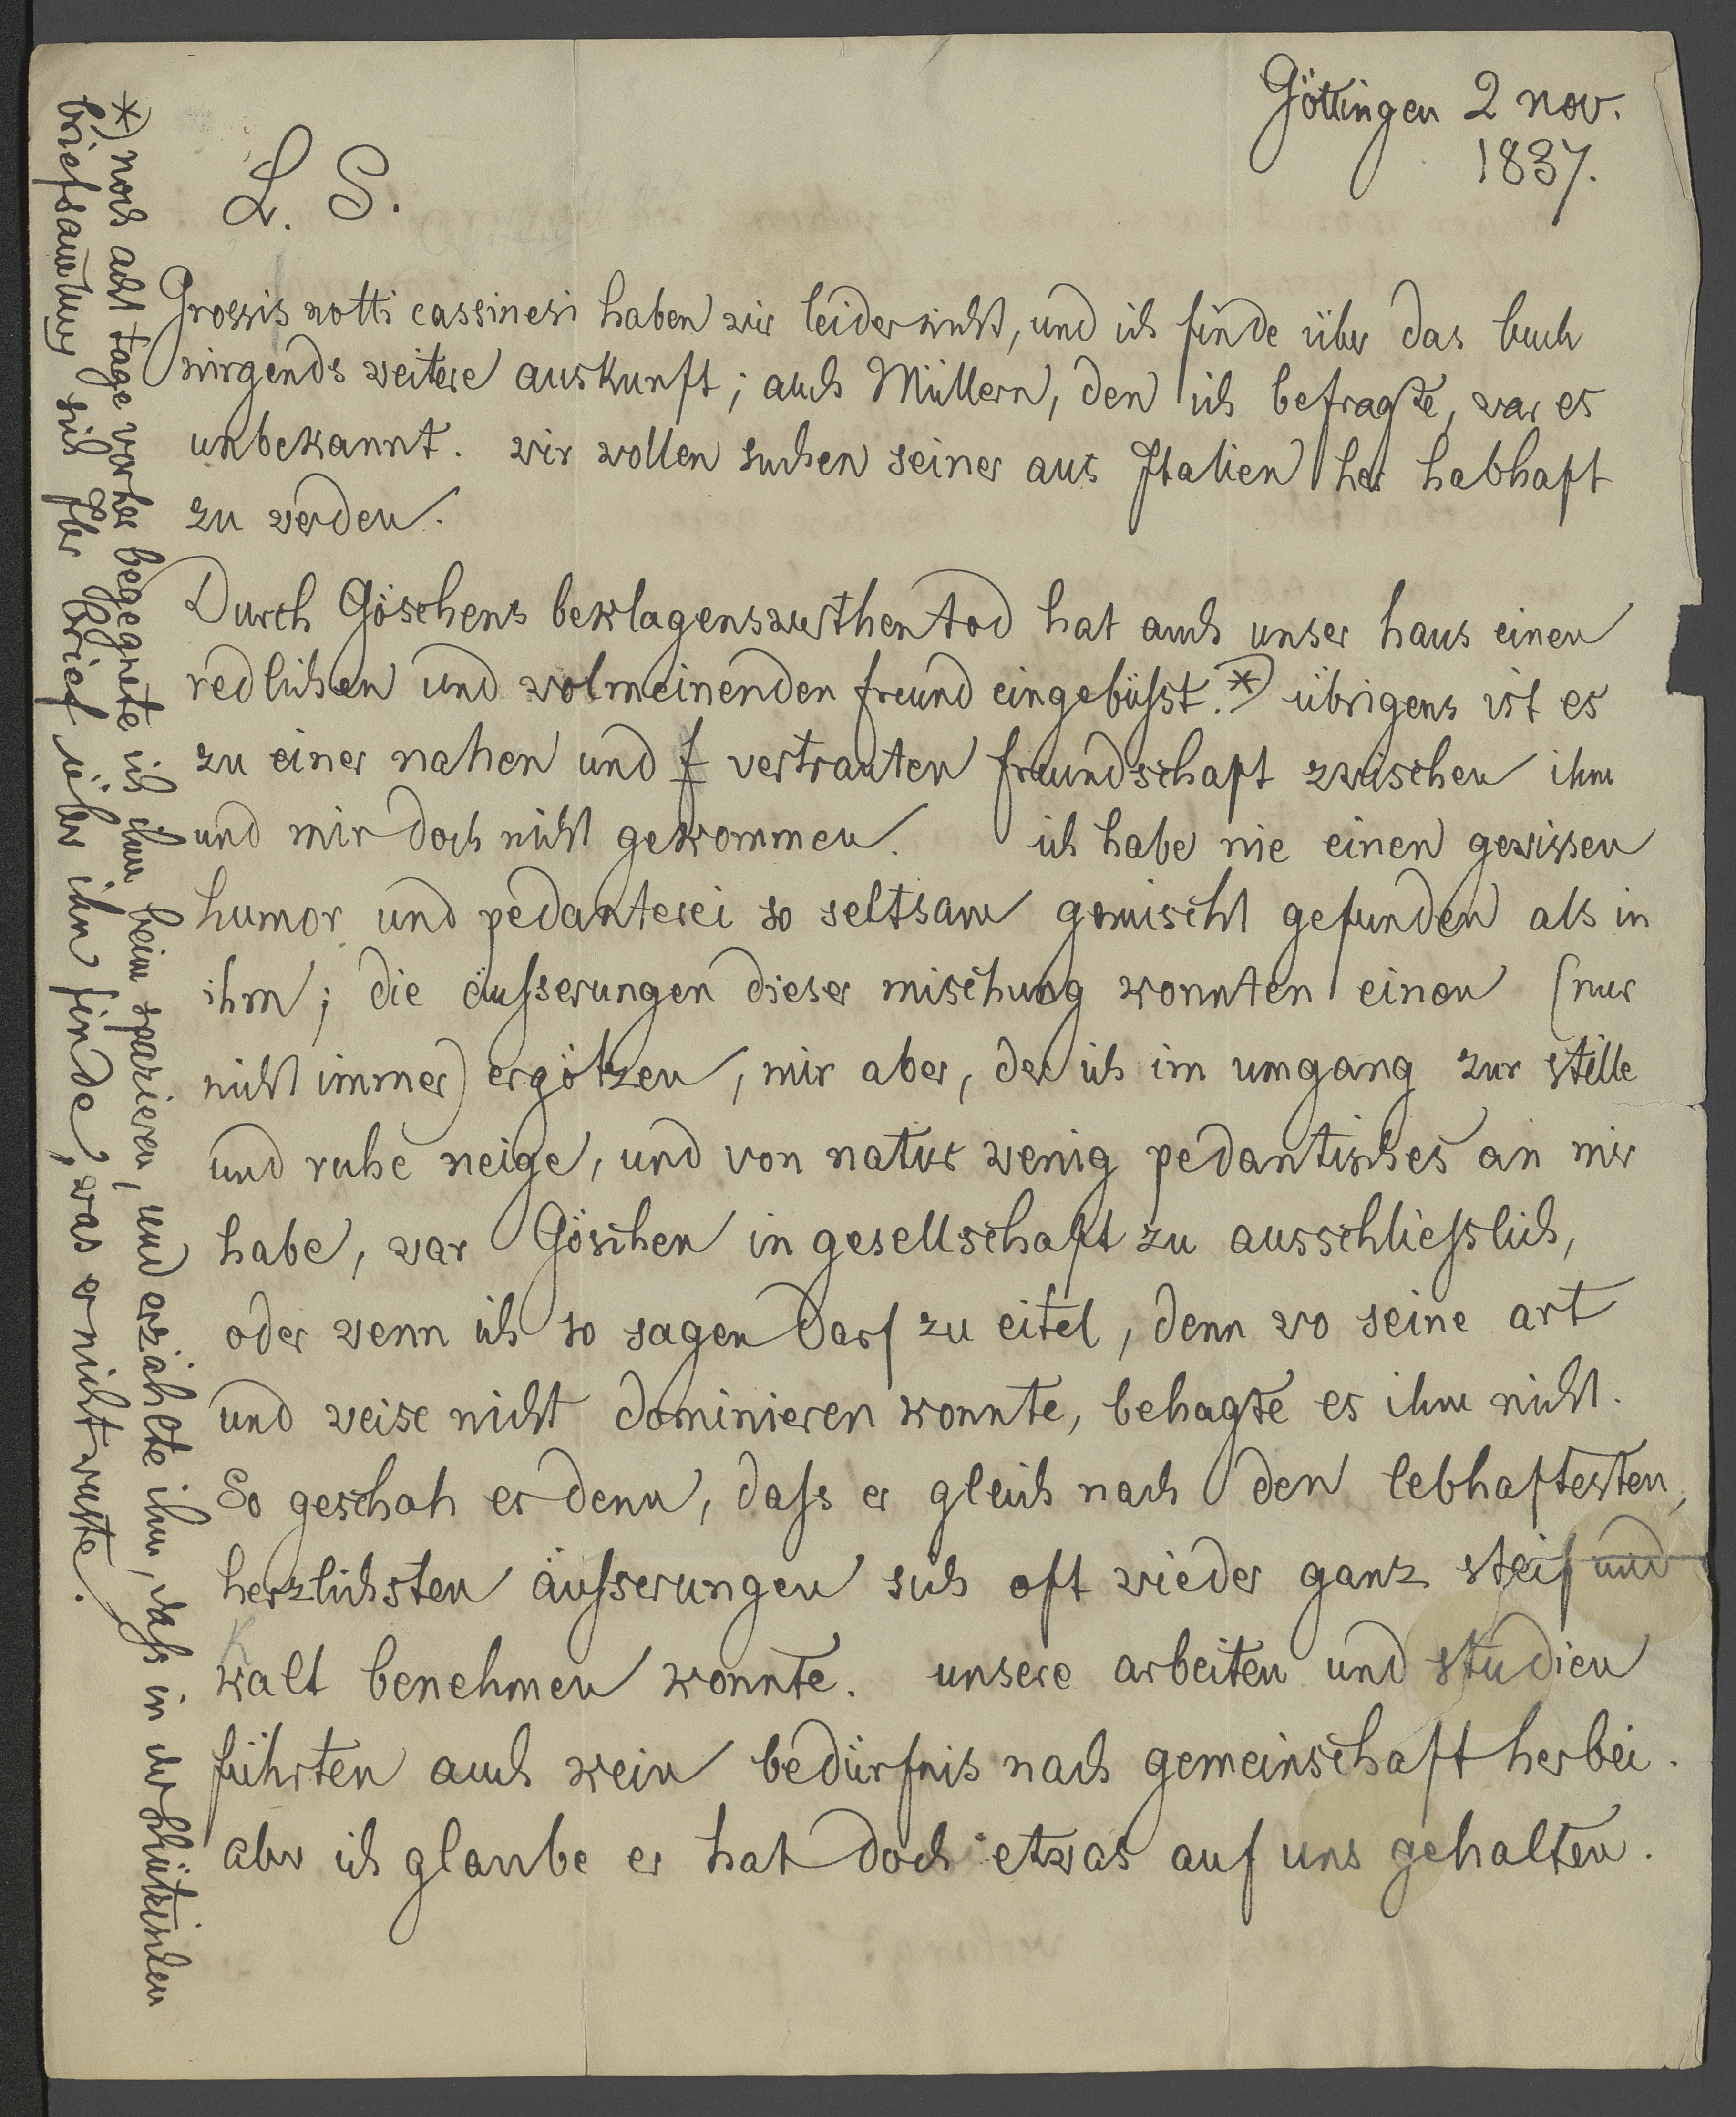 Göttingen 2 nov.
1837.
L. S.
Grossis notti cassinesi haben wir leider nicht, und ich finde über das buch
nirgends weitere auskunft; auch Müllern, den ich befragte, war es
unbekannt. wir wollen suchen seiner aus Italien her habhaft
zu werden.
Durch Göschens beklagenswerthen tod hat auch unser haus einen
redlichen und wolmeinenden freund eingebüſst.*) übrigens ist es
zu einer nahen und f vertrauten freundschaft zwischen ihm
und mir doch nicht gekommen. ich habe nie einen gewissen
humor und pedanterei so seltsam gemischt gefunden als in
ihm; die äuſserungen dieser mischung konnten einen (nur
nicht immer) ergötzen, mir aber, der ich im umgang zur stille
und ruhe neige, und von natur wenig pedantisches an mir
habe, war Göschen in gesellschaft zu ausschlieſslich,
oder wenn ich so sagen darf zu eitel, denn wo seine art
und weise nicht dominieren konnte, behagte es ihm nicht.
So geschah es denn, daſs er gleich nach den lebhaftesten,
herzlichsten äuſserungen sich oft wieder ganz steif und
kalt benehmen konnte. unsere arbeiten und studien
führten auch kein bedürfnis nach gemeinschaft herbei.
aber ich glaube er hat doch etwas auf uns gehalten.
*) noch acht tage vorher begegnete ich ihm beim spazieren, und erzählte ihm, daſs in der Schützischen
briefsamlung sich Ihr brief über ihn finde, was er nicht wuste.